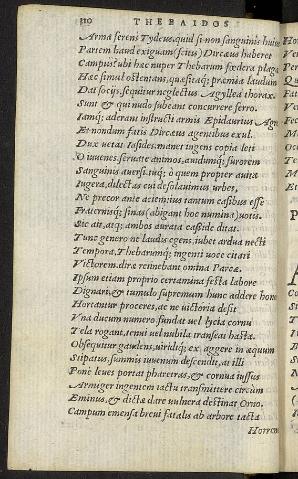 310 THEBAIDOS
Arma ferens Tydeus, quid si non sanguinis huius
Partem haud exiguam (satis) Dircæus haberet
Campus? ubi hæc nuper Thebarum fœdera plage
Hæc simul ostentans, quæsitaq; præmia laudum
Dat socijs, sequitur neglectus Agyllea thorax.
Sunt & qui nudo subeant concurrere ferro.
Iamq; aderant instructi armis Epidaurius Agr
Et nondum fatis Dircæus agentibus exul.
Dux uetat Iasides, manet ingens copia leti
O iuuenes, seruate animos, auidumq; furorem
Sanguinis aduersi, tuq; ô quem propter auita
Iugera, dilectas cui desolauimus urbes,
Ne precor ante aciem ius tantum casibus esse
Fraternisq; sinas (abigant hoc numina) uotis.
Sic ait, atq; ambos aurata casside ditat.
Tunc genero ne laudis egens, iubet ardua necti
Tempora, Thebarumq; ingenti uoce citari
Victorem. diræ retinebant omina Parcæ.
Ipsum etiam proprio certamina festa labore
Dignari, & tumulo supremum hunc addere hono
Hortantur proceres, ac ne uictoria desit
Vna ducum numero fundat uel lycia cornu
Tela rogant, tenui uel nubila transeat hasta.
Obsequitur gaudens, uiridiq; ex aggere in æquum
Stipatus summis iuuenum descendit, at illi
Ponè leues portat pharetras, & cornua iussus
Armiger ingentem iactu transmittere circum
Eminus, & dictæ dare uulnera destinat Orno.
Campum emensa breui fatalis ab arbore tacta
Horren